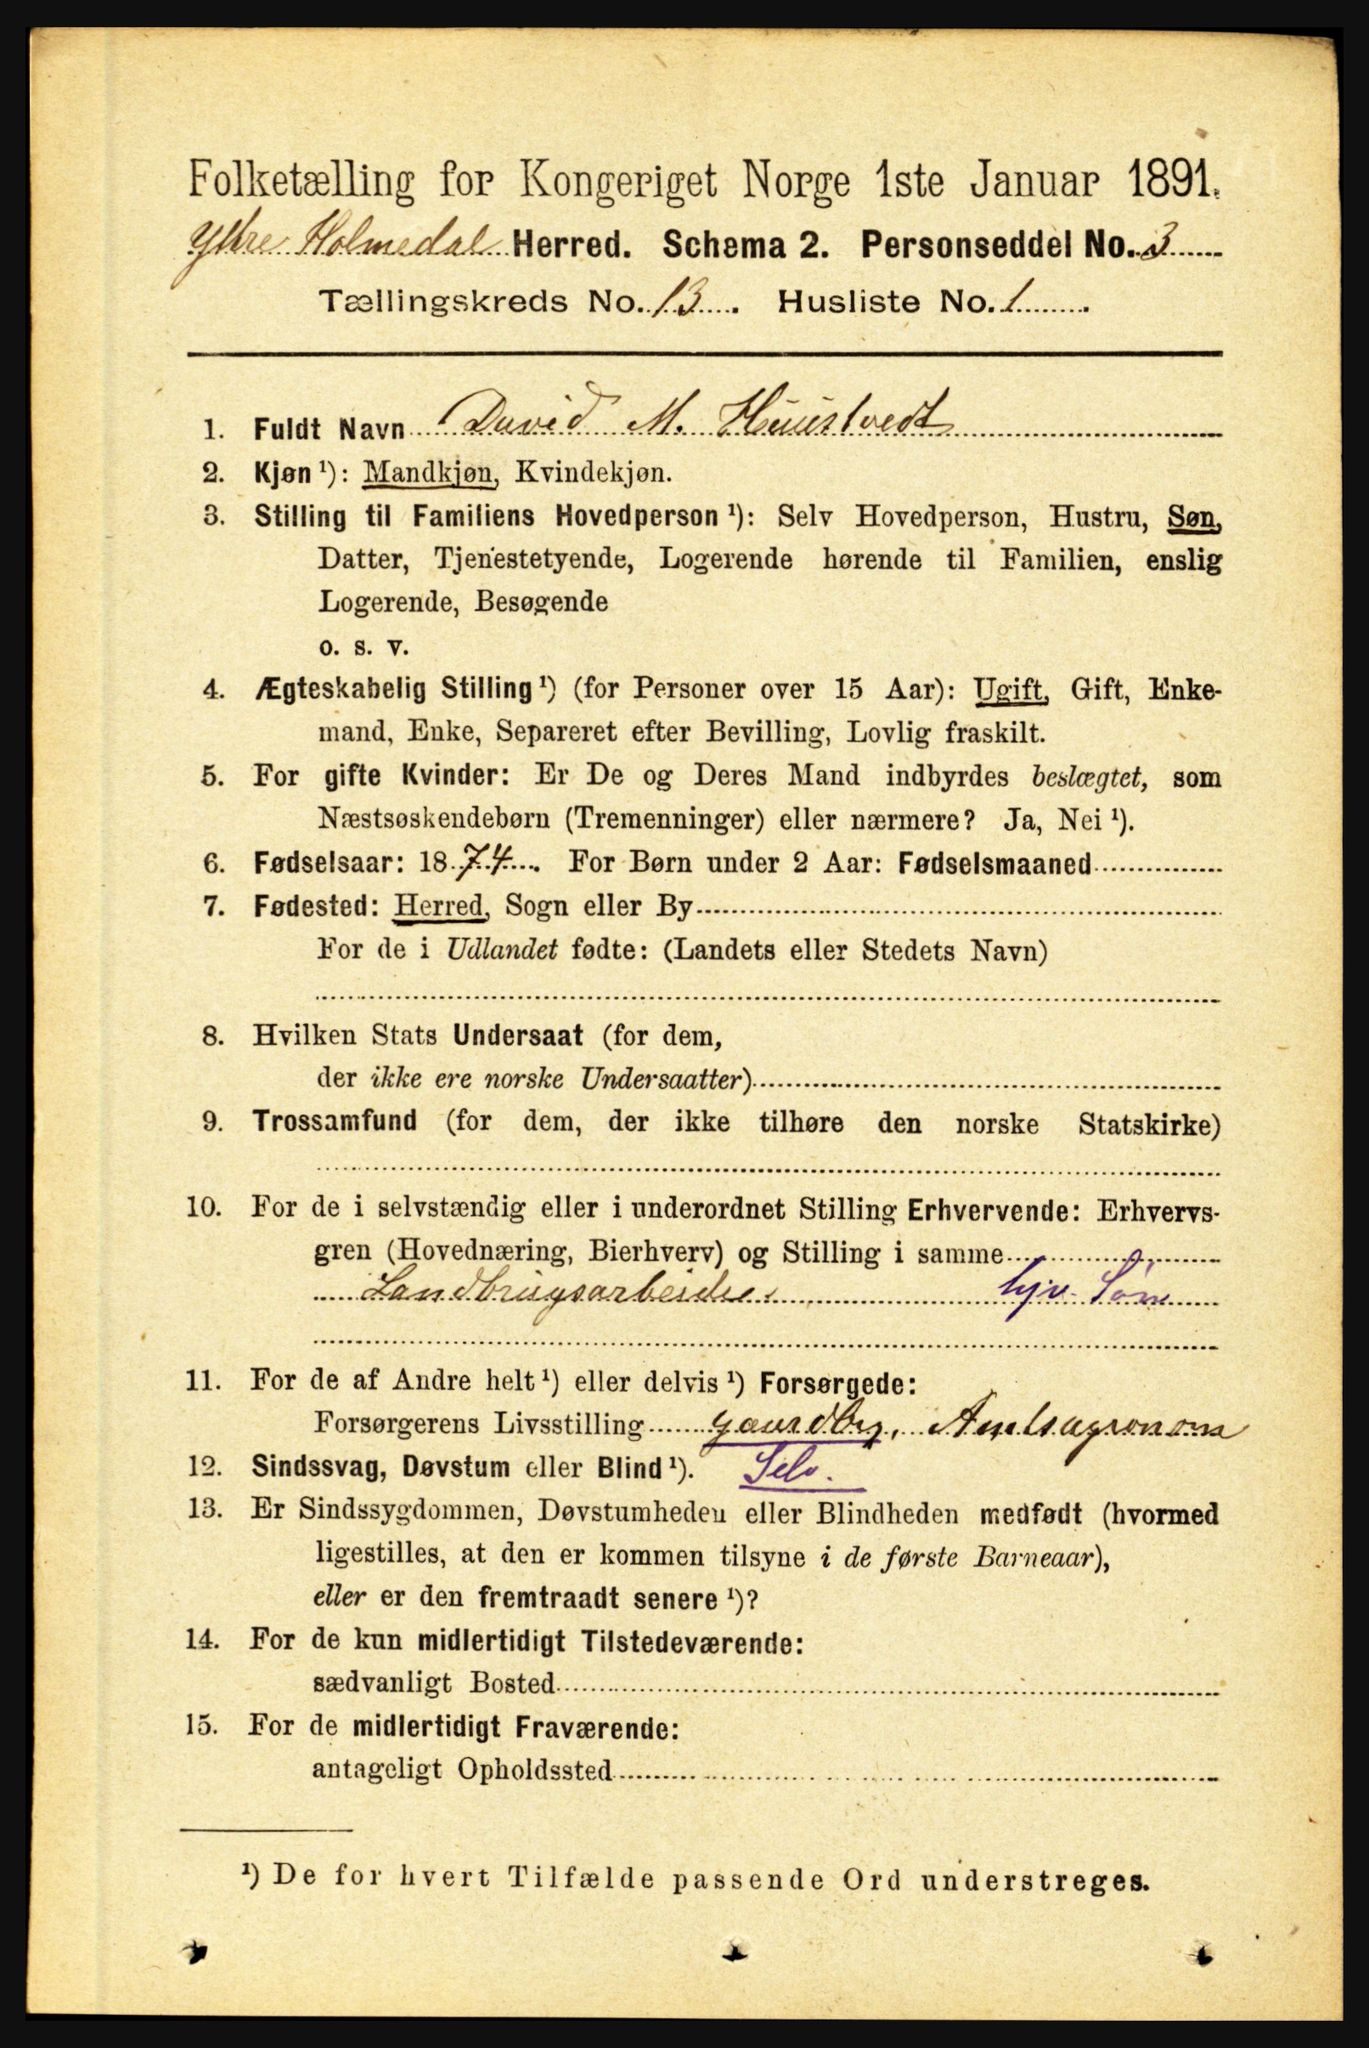 Folketælling for Kongeriget Norge 1ste Januar 1891.
Ytre Holmedal Herred. Schema 2. Personseddel No. 3
Tællingskreds No. 13. Husliste No. 1.
1. Fuldt Navn David M. Huustvedt
2. Kjøn ¹): Mandkjøn, Kvindekjøn.
3. Stilling til Familiens Hovedperson ¹): Selv Hovedperson, Hustru, Søn,
Datter, Tjenestetyende, Logerende hørende til Familien, enslig
Logerende, Besøgende
o. s. v.
4. Ægteskabelig Stilling ¹) (for Personer over 15 Aar): Ugift, Gift, Enke-
mand, Enke, Separeret efter Bevilling, Lovlig fraskilt.
5. For gifte Kvinder: Er De og Deres Mand indbyrdes beslægtet, som
Næstsøskendebørn (Tremenninger) eller nærmere? Ja, Nei ¹).
6. Fødselsaar: 1874. For Børn under 2 Aar: Fødselsmaaned
7. Fødested: Herred, Sogn eller By
For de i Udlandet fødte: (Landets eller Stedets Navn)
8. Hvilken Stats Undersaat (for dem,
der ikke ere norske Undersaatter)
9. Trossamfund (for dem, der ikke tilhøre den norske Statskirke)
10. For de i selvstændig eller i underordnet Stilling Erhvervende: Erhvervs-
gren (Hovednæring, Bierhverv) og Stilling i samme
Landbrugsarbeider Søn
11. For de af Andre helt ¹) eller delvis ¹) Forsørgede:
Forsørgerens Livsstilling Gaardbr, Amtsagronom
12. Sindssvag, Døvstum eller Blind ¹). Selv.
13. Er Sindssygdommen, Døvstumheden eller Blindheden medfødt (hvormed
ligestilles, at den er kommen tilsyne i de første Barneaar),
eller er den fremtraadt senere ¹)?
14. For de kun midlertidigt Tilstedeværende:
sædvanligt Bosted
15. For de midlertidigt Fraværende:
antageligt Opholdssted
¹) De for hvert Tilfælde passende Ord understreges.